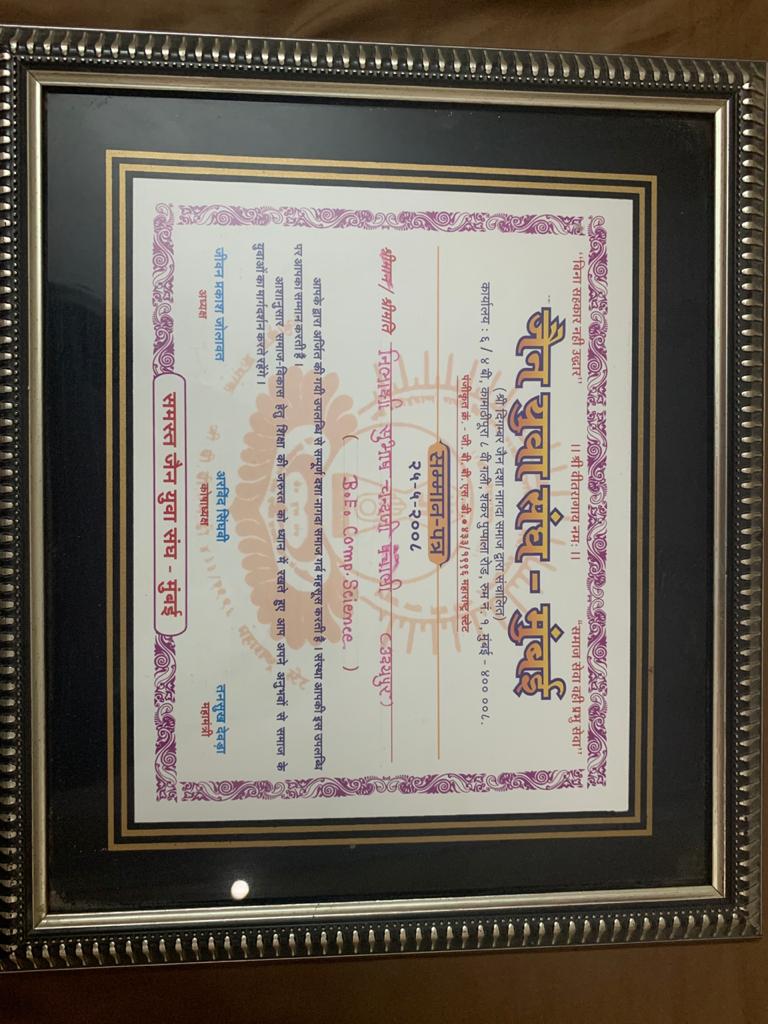 "बिना सहकार नही उद्धार" ।। श्री वीतरागाय नमः ।। "समाज सेवा वही प्रभु सेवा"
जैन युवा संघ - मुंबई
(श्री दिगम्बर जैन दशा नागदा समाज द्वारा संचालित)
कार्यालय : ६ / ४ बी, कामाठीपूरा ८ वी गली, शंकर पुप्पाला रोड, रुम नं. १, मुंबई - ४०० ००८.
पंजीकृत क्रं. - जी. बी. बी. एस. डी. ४३३/१९९६ महाराष्ट्र स्टेट
सम्मान-पत्र
२५-५-२००८
श्रीमान / श्रीमति निलाक्षी सुभाष चन्दजी पंचोली (उदयपुर)
( B.E. Comp. Science )
आपके द्वारा अर्जित की गयी उपलब्धि से सम्पूर्ण दशा नागदा समाज गर्व महसूस करती है । संस्था आपकी इस उपलब्धि
पर आपका सम्मान करती है ।
आशानुसार समाज-विकास हेतु शिक्षा की जरुरत को ध्यान में रखते हुए आप अपने अनुभबों से समाज के
युवाओं का मार्गदर्शन करते रहेंगे ।
जीवन प्रकाश जोलावत अरविंद सिंघवी तनसुख देवड़ा
अध्यक्ष कोषाध्यक्ष महामंत्री
समस्त जैन युवा संघ - मुंबई